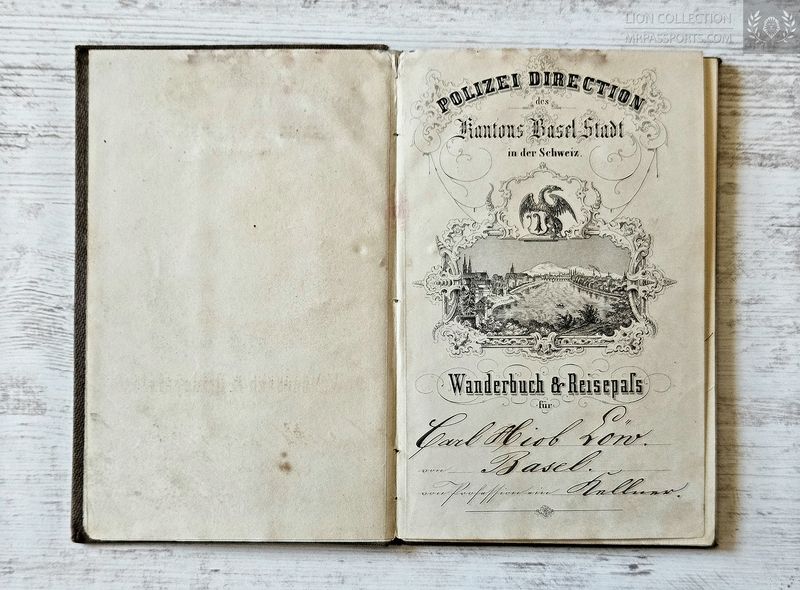 LION COLLECTION
MRPASSPORTS.COM
POLIZEI DIRECTION
des
Kantons Basel-Stadt
in der Schweiz.
Wanderbuch & Reisepaſs
für
Carl Hiob Löw.
von Basel.
von Profession ein Kellner.